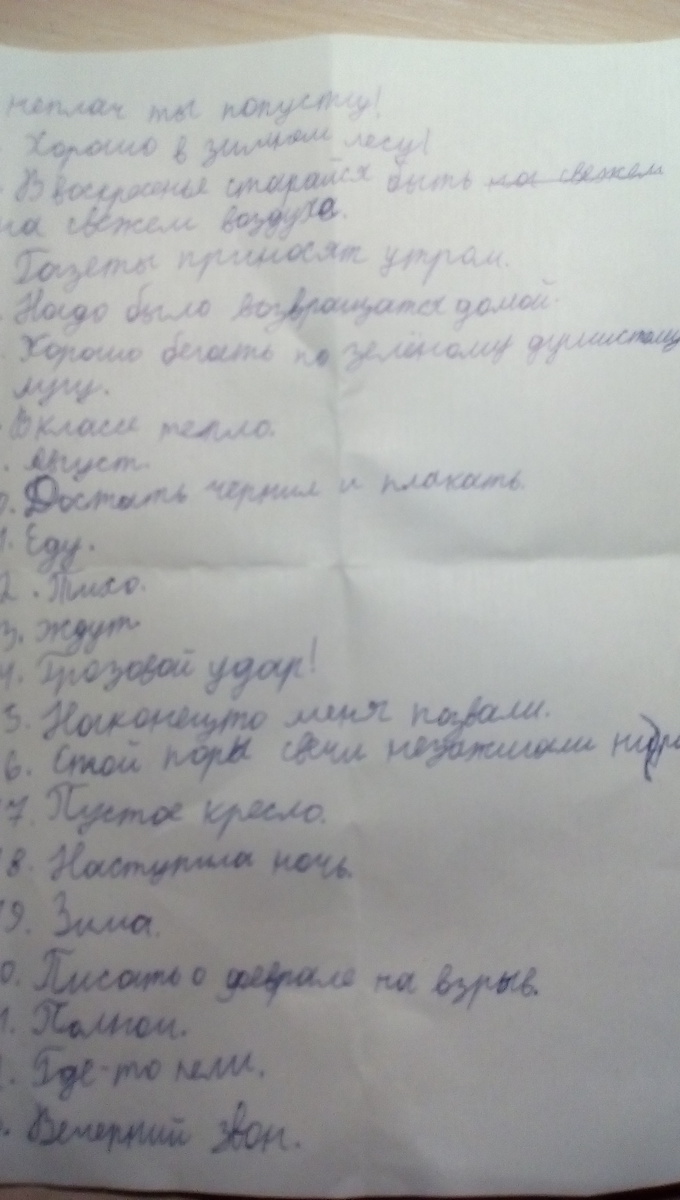 неплач ты попусту!
Хорошо в зимнем лесу!
В воскресенье старайся быть на свежем
на свежем воздухе.
Газеты приносят утром.
Надо было возвращатся домой.
Хорошо бегать по зелёному душистому
лугу.
В класе тепло.
Август.
0. Достать чернил и плакать.
1. Еду.
2. Тихо.
3. Ждут
4. Грозовой удар!
5. Наконецто меня позвали.
6. Стой поры свечи незажигали
17. Пустое кресло.
18. Наступила ночь.
19. Зима.
0. Писать о феврале на взрыд.
1.
Где-то пели.
Вечерний звон.